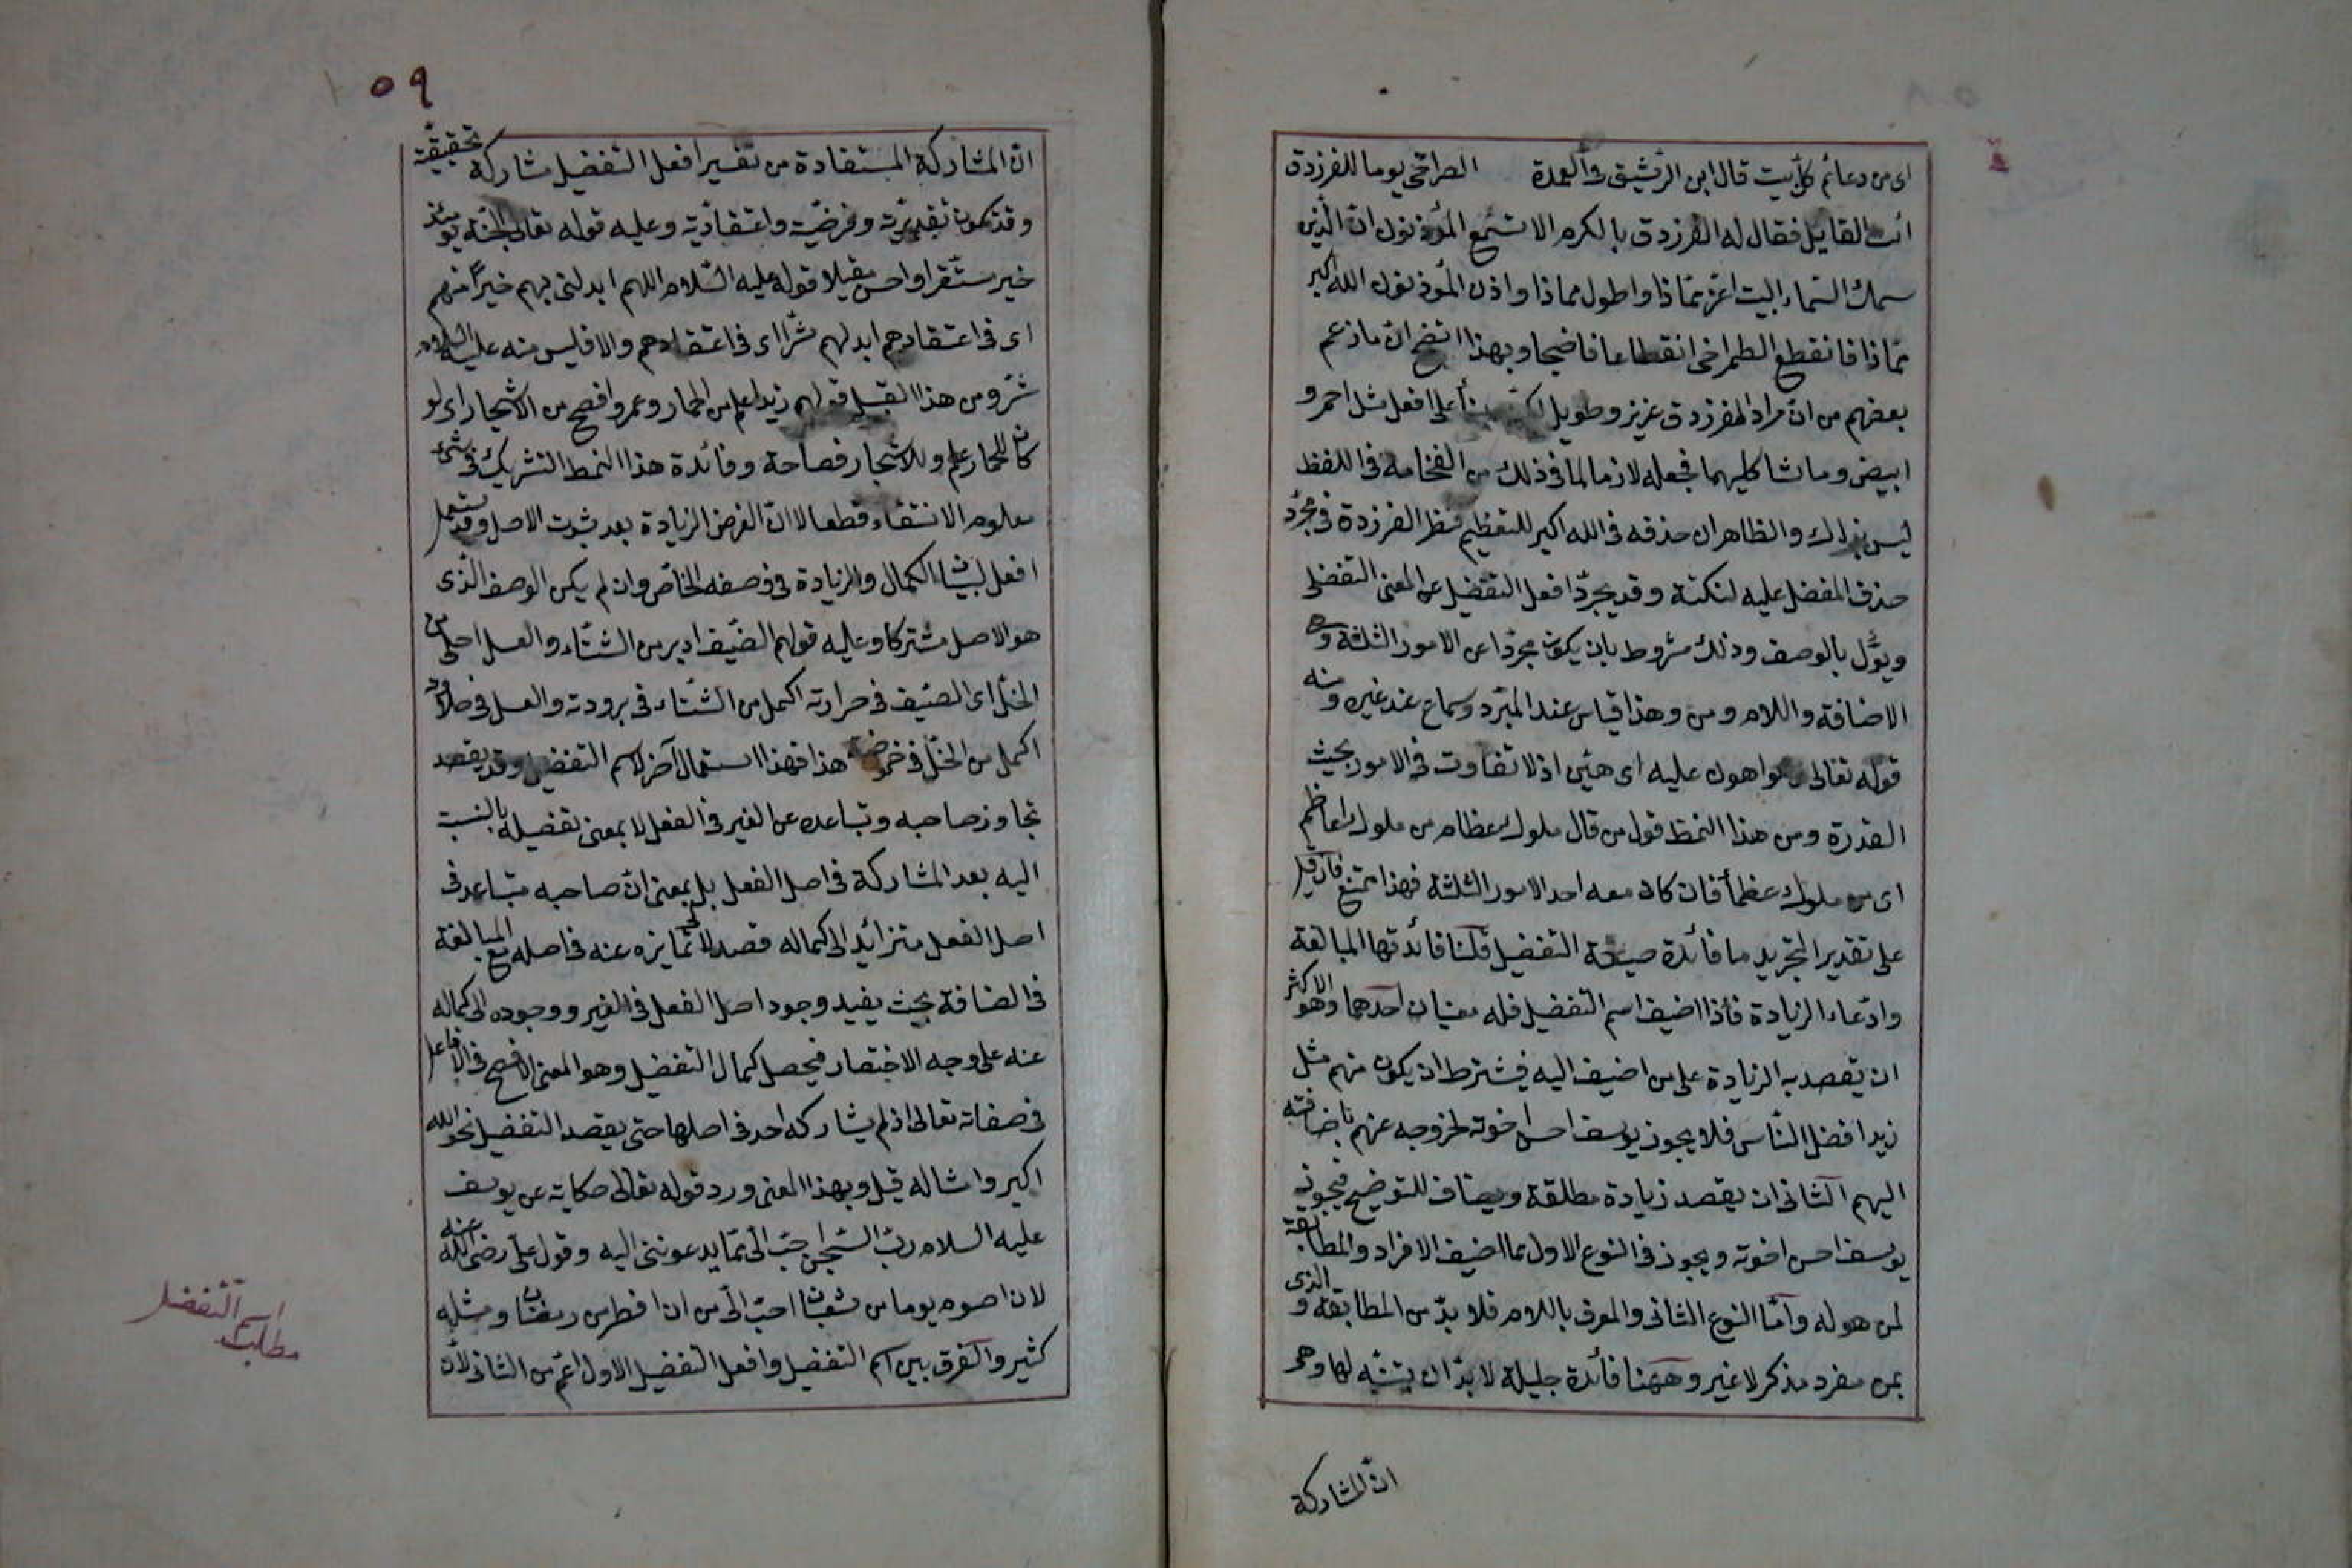 اى من دعائم كل بيت قال ابن الرشيق فى العمدة الطراقحى يوما للفرزدق
انت القايل فقال له الفرزدق بالكره الا تسمع المؤذنون ان الذى
سمك السماء البيت اعز مماذا واطول مماذا واذن المؤذنون الله اكبر
مماذا فانقطع الطمراخى انقطاعا فاضحا وبهذا اتضح ان ما زعم
بعضهم من ان مراد الفرزدق عزيز وطويل على افعل مثل احمر و
ابيض وما شاكليهما فجعله لازما لما فى ذلك من الفخامة فى اللفظ
ليس بذلك والظاهر ان حذفه فى الله اكبر للتعظيم فنظر الفرزدة فى مجرد
حذف المفضل عليه لنكتة وقد يجرد افعل التفضيل عن المعنى التفضلى
ويؤل بالوصف وذلك مشروط بان يكون مجردا عن الامور الثلثة وهى
الاضافة واللام ومن وهذا قياس عند المبرد وسماع عند غيره ومنه
قوله تعالى وهو اهون عليه اى هين اذ لا تفاوت فى الامور بحيث
القدرة ومن هذا النمط قول من قال ملوك عظام من ملوك اعاظم
اى من ملوك عظما فان كان معه احد الامور الثلثة فهذا ممتنع فان قيل
على تقدير التجريد ما فائدة صيغة التفضيل قلنا فائدتها المبالغة
وادعاء الزيادة فاذا اضيف اسم التفضيل فله معنيان احدهما وهو الاكثر
ان تقصد به الزيادة على من اضيف اليه فيشترط ان يكون منهم مثل
زيد افضل الناس فلا يجوز يوسف احسن اخوته لخروجه عنهم باضافته
اليهم الثانى ان يقصد زيادة مطلقة ويضاف للتوضيح فيجوز
يوسف احسن اخوته ويجوز فى النوع الاول مما اضيف الافراد والمطابقة
لمن هو له واما النوع الثانى والمعرف باللام فلا بد من المطابقة والذى
بمن مفرد مذكر لا غير وههنا فائدة جليلة لا بد ان يتنبه لها وهى
ان المشاركة
٥٩
ان المشاركة المستفادة من تفسير افعل التفضيل مشاركة تحقيقية
وقد تكون تقديرية وفرضية واعتقادية وعليه قوله تعالى الجنة يومئذ
خير مستقرا واحسن مقيلا قوله عليه السلام اللهم ابدلنى بهم خيرا منهم
اى فى اعتقادهم ابدلهم شرا اى فى اعتقادهم والا فليس منه عليه السلام
شر ومن هذا القبيل قولهم زيد اعلم من الحمار وعمرو افصح من الاشجار اى لو
كان للحمار علم وللاشجار فصاحة وفائدة هذا النمط التشريك فى شئ
معلوم الانتفاء قطعا لا ان الغرض الزيادة بعد ثبوت الاصل وقد يستعمل
افعل لبيان الكمال والزيادة فى وصفه الخاص وان لم يكن الوصف الذى
هو الاصل مشتركا وعليه قولهم الضيف ادير من الشتاء والعسل احلى من
الخل اى الصيف فى حرارته اكمل من الشتاء فى برودته والعسل فى حلاوته
اكمل من الخل فى حموضته هذا فهذا استعمال آخر لاسم التفضيل وقد يقصد
تجاوز صاحبه وتباعده عن الغير فى الفعل لا بمعنى تفضيله بالنسبة
اليه بعد المشاركة فى اصل الفعل بل بمعنى ان صاحبه متباعد فى
اصل الفعل متزائد الى كماله قصدا الى تمايزه عنه فى اصله مع المبالغة
فى الضافة بحيث يفيد وجود اصل الفعل فى الغير ووجوده الى كماله
عنه على وجه الاختصار فيحصل كمال التفضيل وهو المعنى الافصح فى الافاعل
فى صفاته تعالى اذ لم يشاركه احد فى اصلها حتى يقصد التفضيل نحو الله
اكبر وامثاله قيل وبهذا المعنى ورد قوله تعالى حكاية عن يوسف
عليه السلام رب السجن احب الى مما يدعوننى اليه وقول على رضى الله عنه
لان اصوم يوما من شعبان احب الى من ان افطر من رمضان ومثله
كثير والفرق بين اسم التفضيل وافعل التفضيل الاول اعم من الثانى لان
اسم التفضل
مطلب